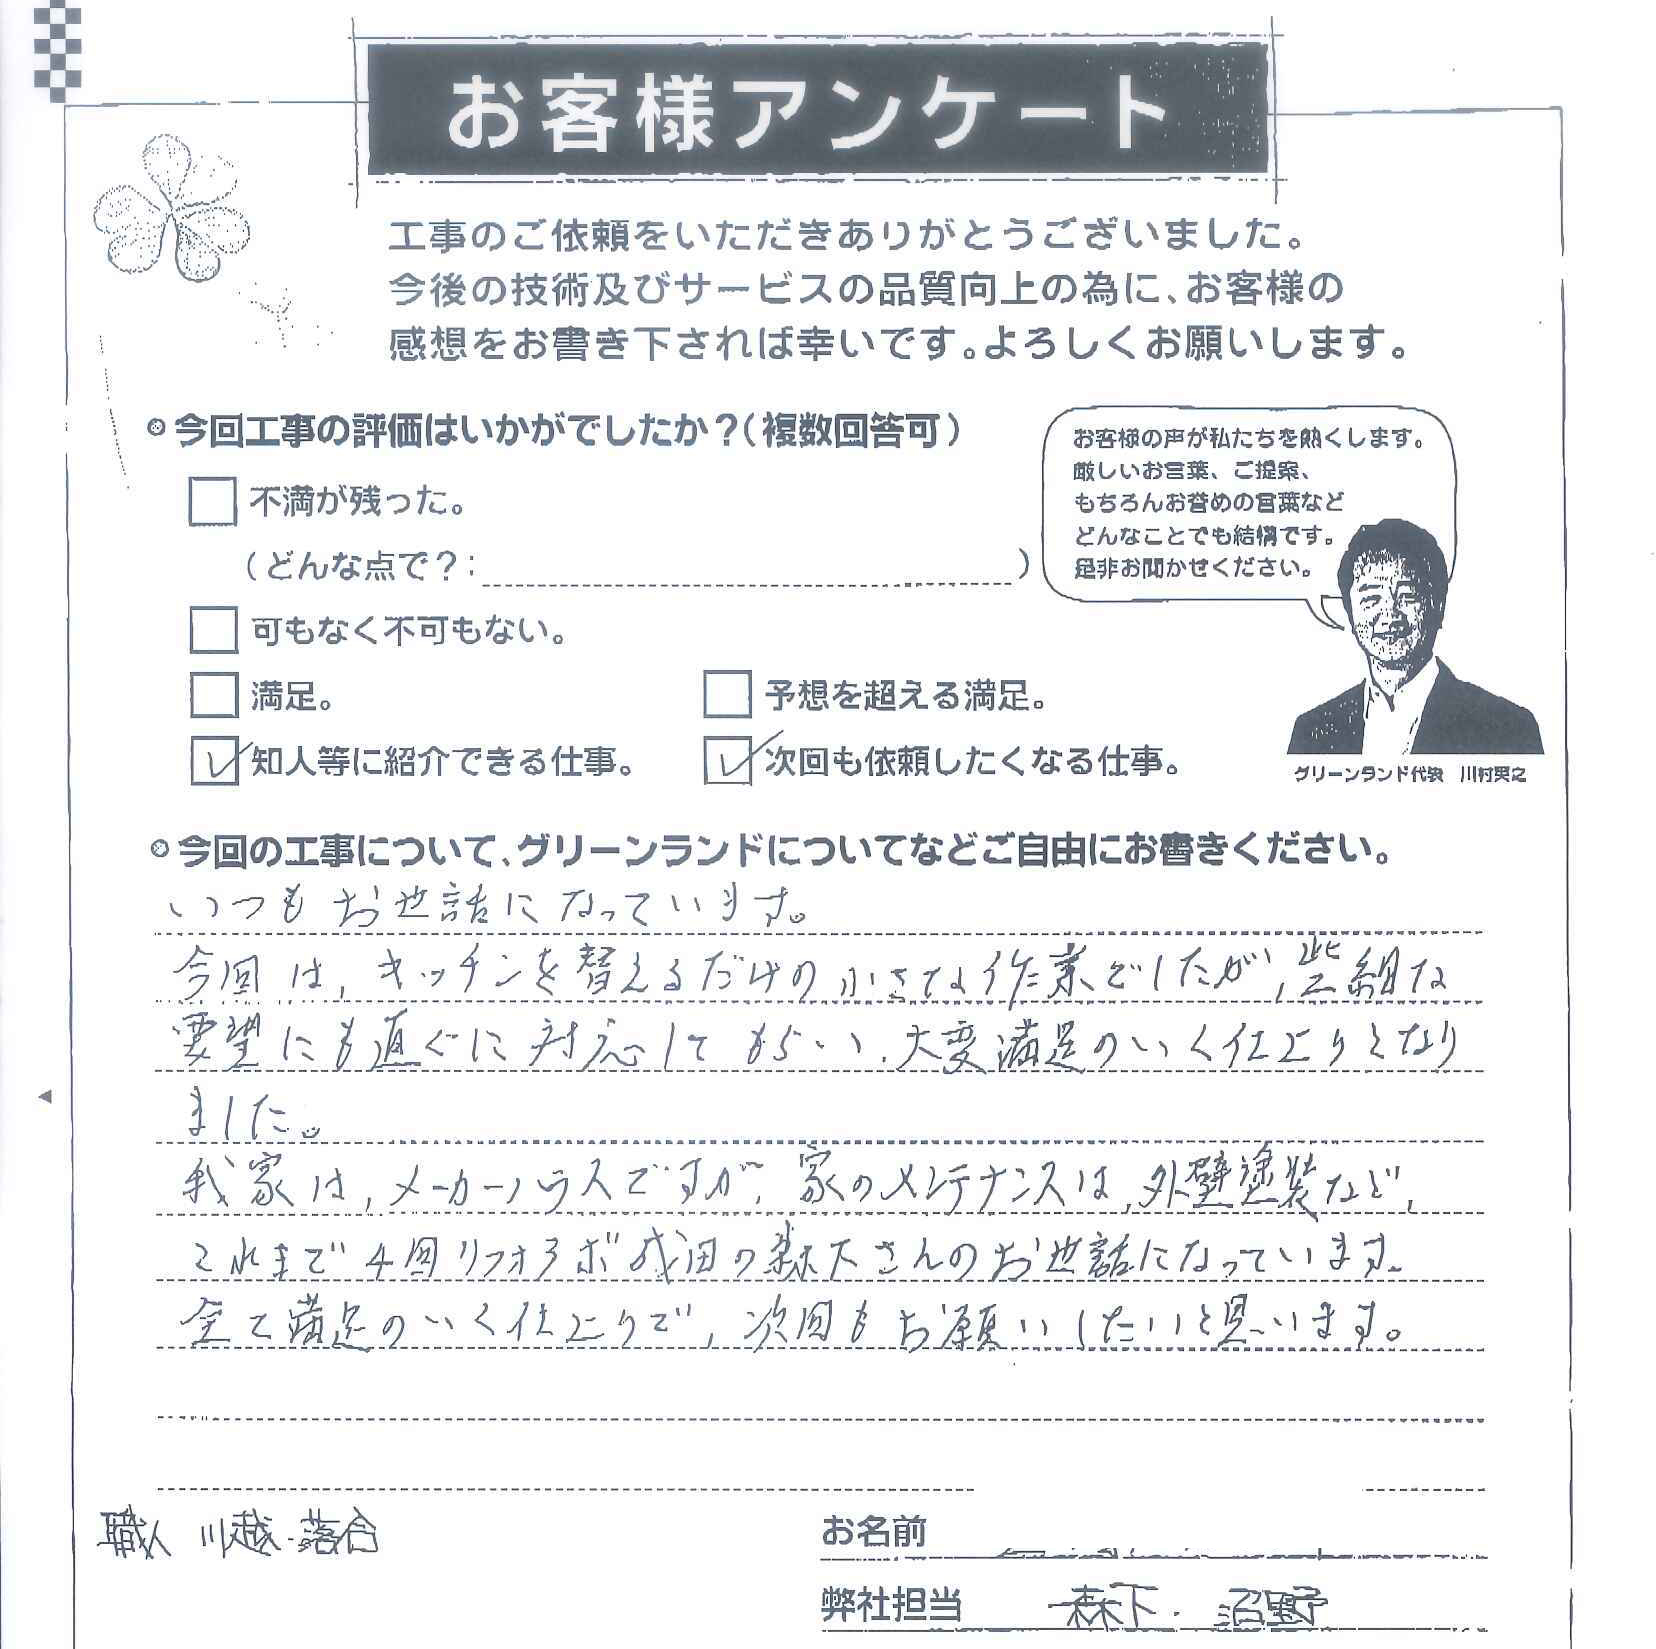 お客様アンケート
工事のご依頼をいただきありがとうございました。
今後の技術及びサービスの品質向上の為に、お客様の
感想をお書き下されば幸いです。よろしくお願いします。
今回工事の評価はいかがでしたか?(複数回答可)
不満が残った。
(どんな点で?: )
可もなく不可もない。
満足。
予想を超える満足。
知人等に紹介できる仕事。
次回も依頼したくなる仕事。
お客様の声が私たちを熱くします。
厳しいお言葉、ご提案、
もちろんお誉めの言葉など
どんなことでも結構です。
是非お聞かせください。
グリーンランド代表 川村英之
今回の工事について、グリーンランドについてなどご自由にお書きください。
いつもお世話になっています。
今回は、キッチンを替えるだけの小さな作業でしたが、些細な
要望にも直ぐに対応してもらい、大変満足のいく仕上りとなり
ました。
我家は、メーカーハウスですが、家のメンテナンスは、外壁塗装など、
これまで4回リフォラボ成田の森下さんのお世話になっています。
全て満足のいく仕上りで、次回もお願いしたいと思います。
職人 川越・落合
お名前
弊社担当 森下・沼野